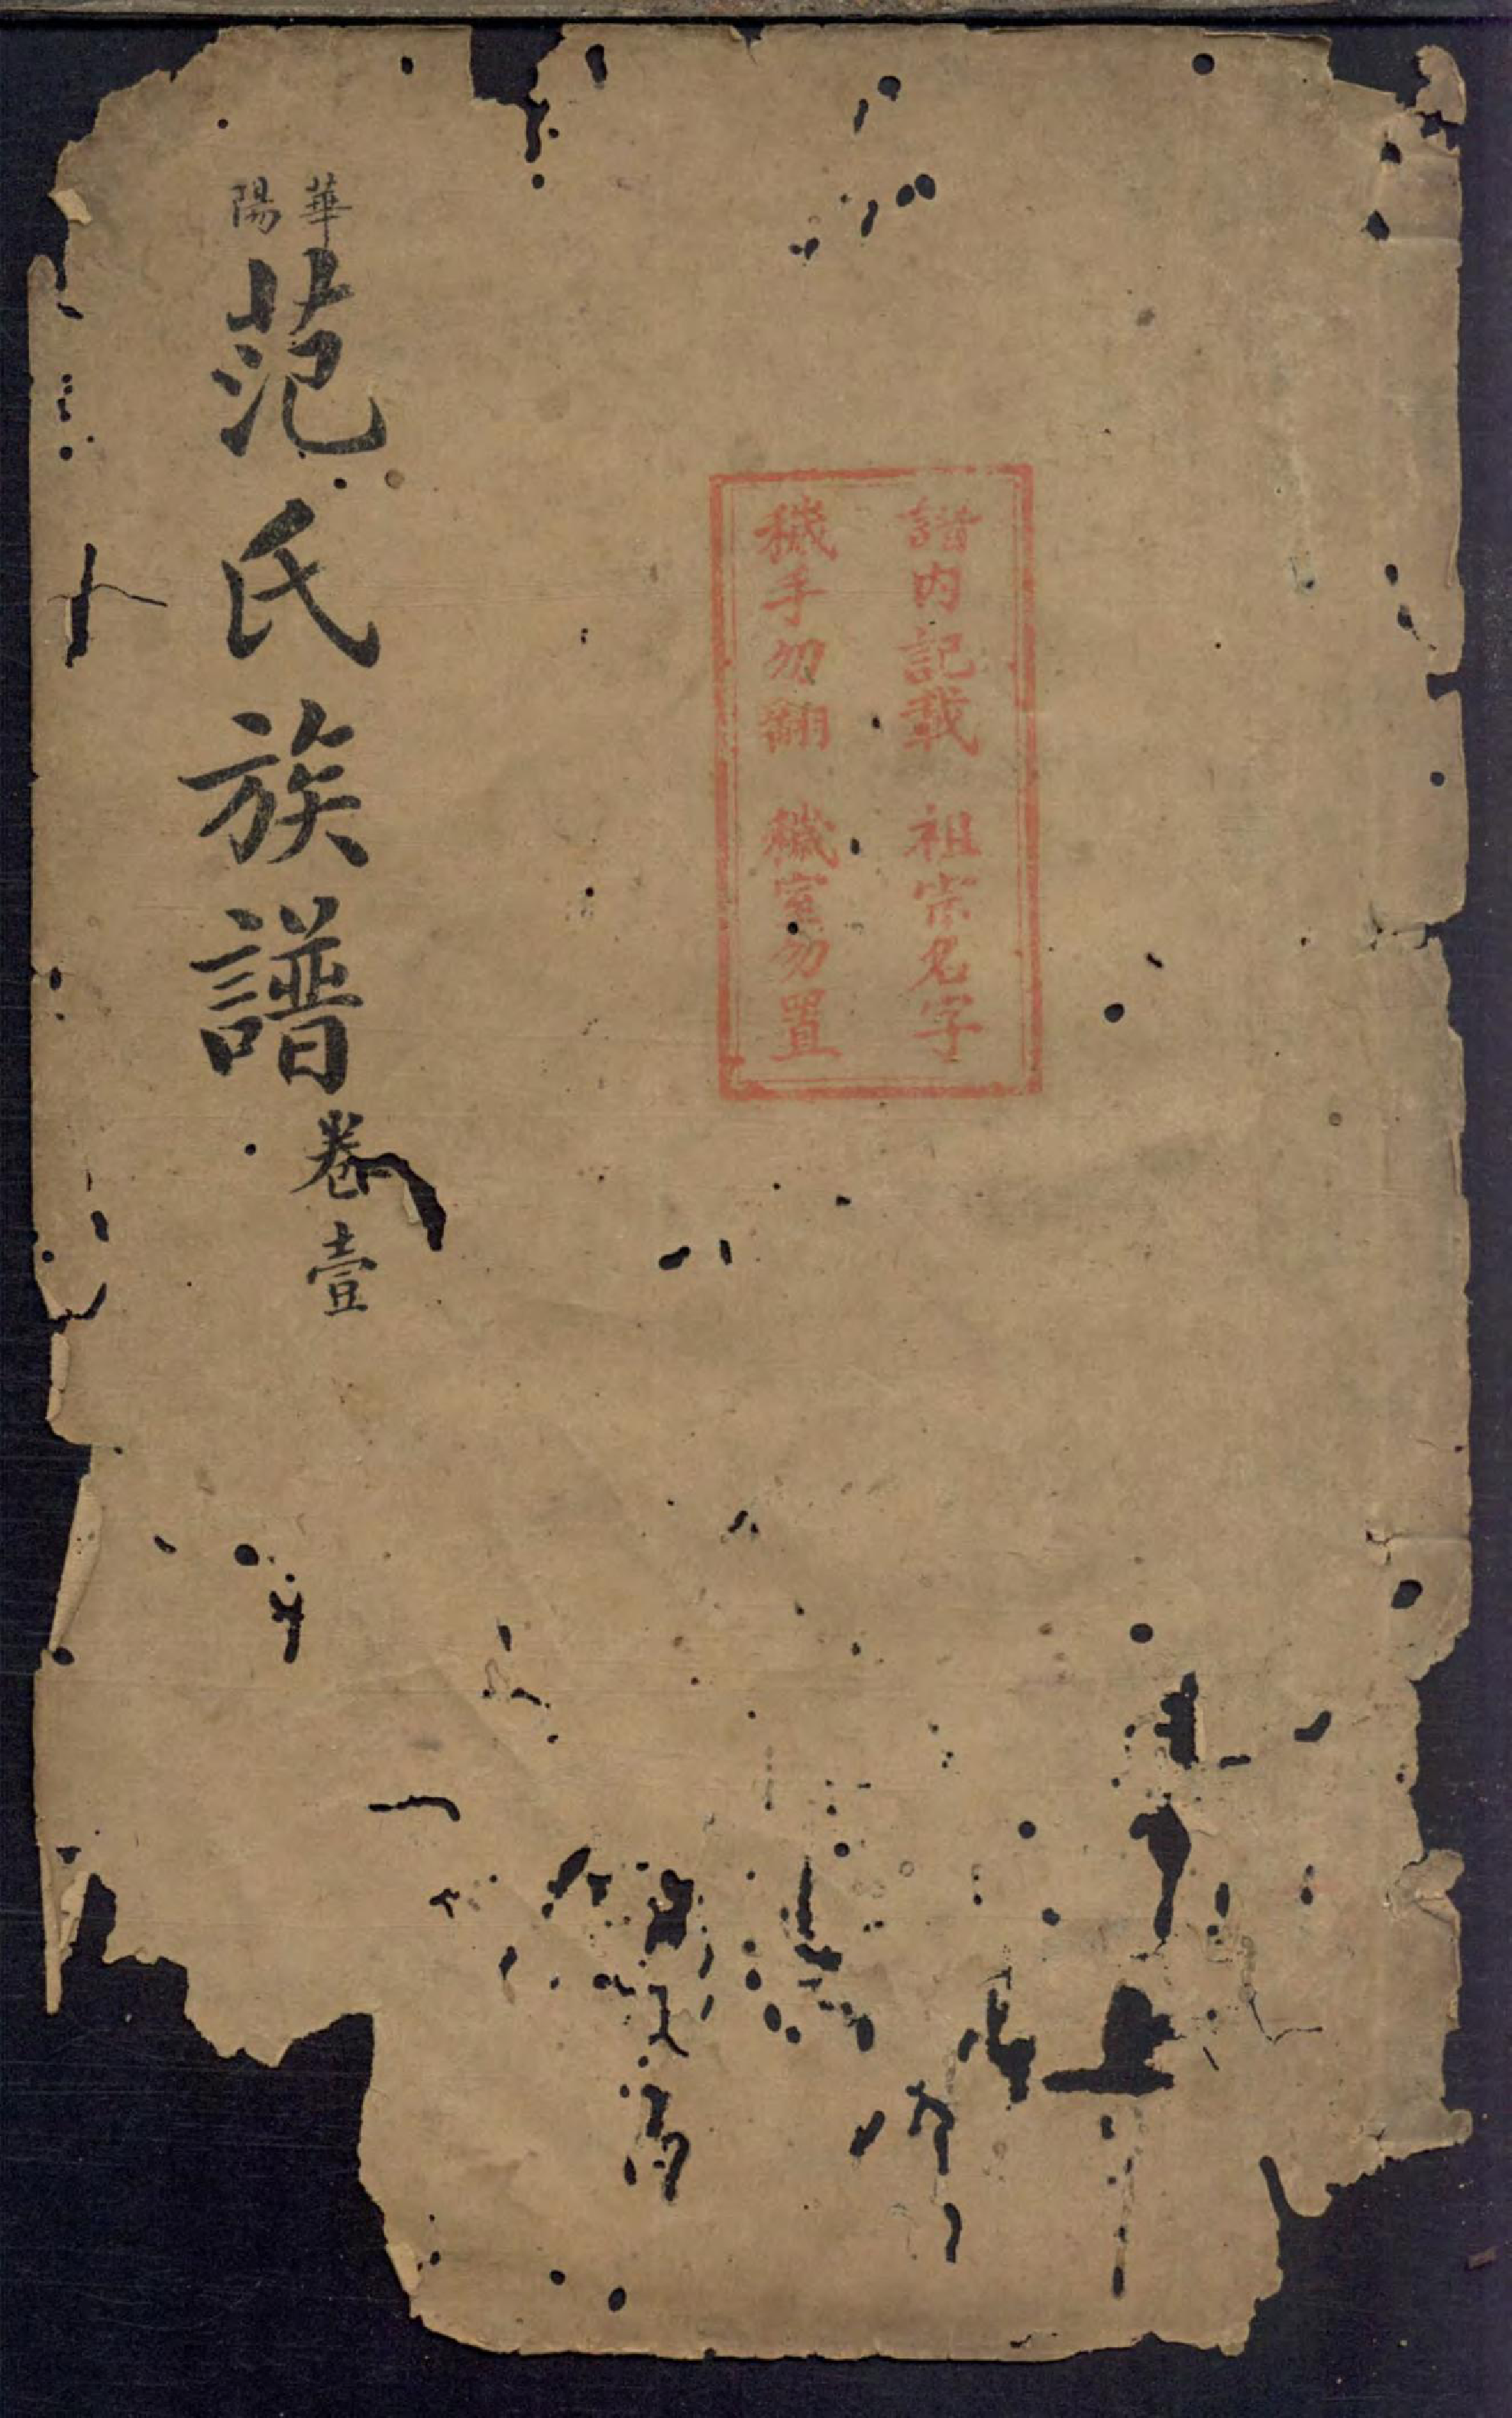 譜内記載 祖宗名字
穢手勿翻 穢室勿置
華陽
范氏族譜
卷壹